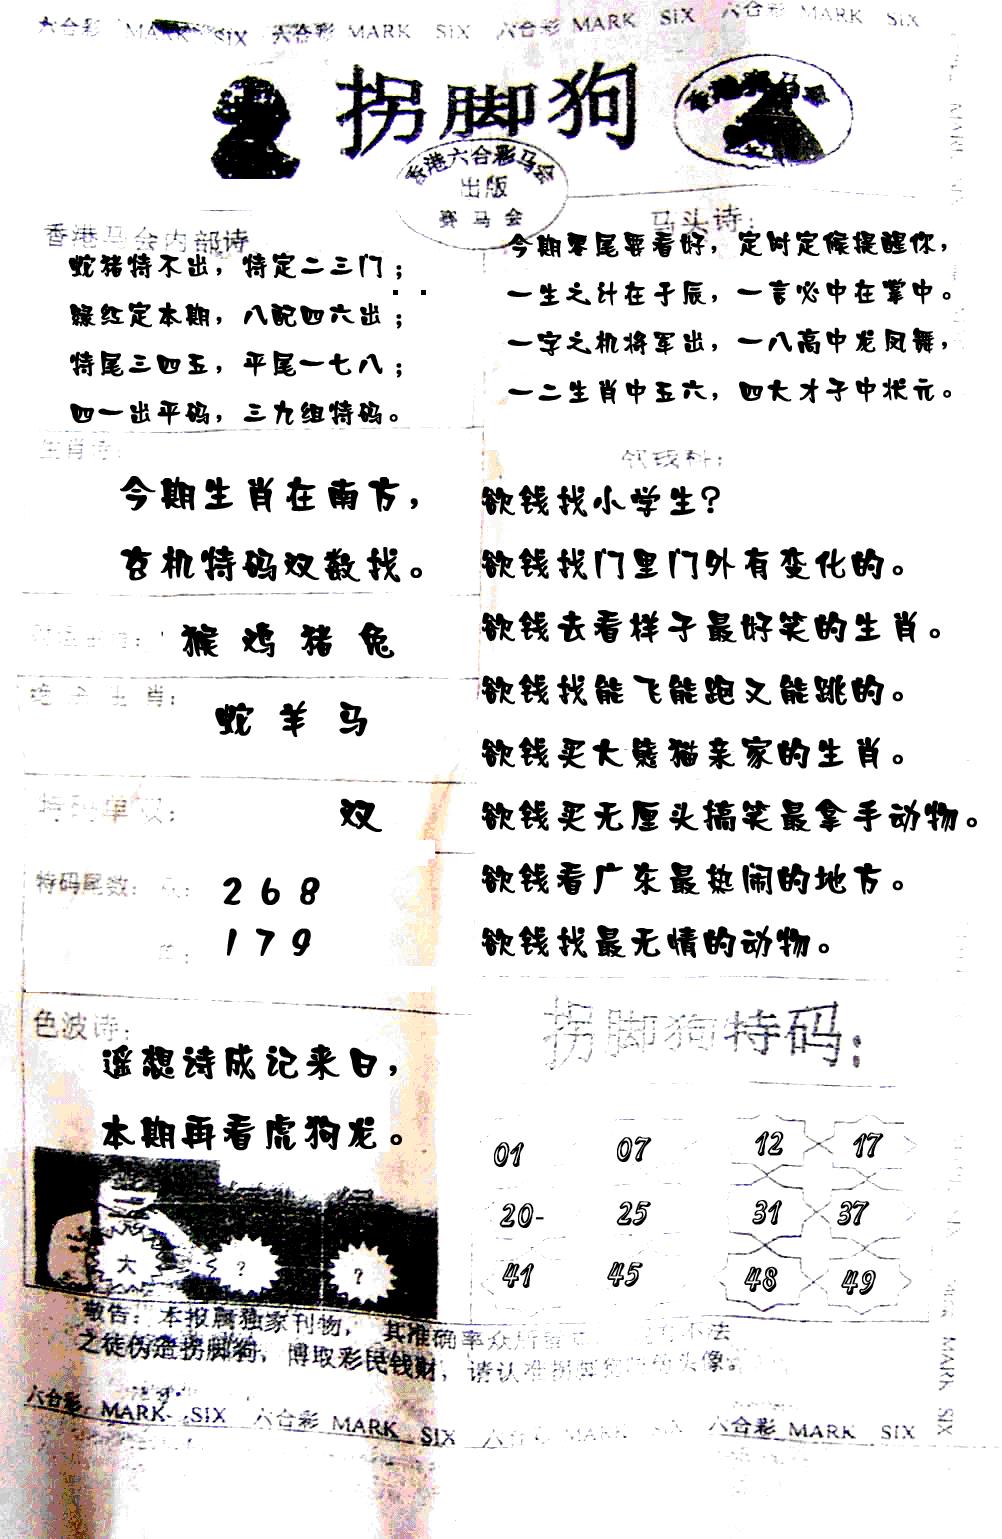 六合彩 MARK SIX 六合彩 MARK SIX 六合彩 MARK SIX 六合彩 MARK SIX
拐脚狗
香港六合彩马会
出版
赛马会
香港马会内部诗
蛇猪特不出，特定二三门；
绿红定本期，八配四六出；
特尾三四五，平尾一七八；
四一出平码，三九组特码。
马头诗：
今期零尾要看好，定时定候提醒你，
一生之计在于辰，一言必中在掌中。
一字之机将军出，一八高中龙凤舞，
一二生肖中五六，四大才子中状元。
生肖诗：
今期生肖在南方，
玄机特码双数找。
猴 鸡 猪 兔
生肖：
蛇 羊 马
特码单双：
双
特码尾数：
2 6 8
1 7 9
欲钱料：
欲钱找小学生？
欲钱找门里门外有变化的。
欲钱去看样子最好笑的生肖。
欲钱找能飞能跑又能跳的。
欲钱买大熊猫亲家的生肖。
欲钱买无厘头搞笑最拿手动物。
欲钱看广东最热闹的地方。
欲钱找最无情的动物。
色波诗：
遥想诗成记来日，
本期再看虎狗龙。
大 ? ?
拐脚狗特码：
01 07 12 17
20- 25 31 37
41 45 48 49
敬告：本报属独家刊物，其准确率众所 不法
之徒伪造拐脚狗，博取彩民钱财，请认准拐脚 头像。
六合彩 MARK SIX 六合彩 MARK SIX 六合彩 MARK SIX 六合彩 MARK SIX
MARK SIX